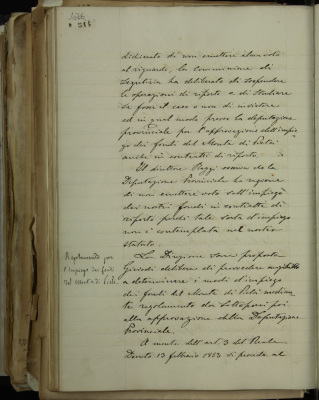 dichiarato di non emettere alcun voto
al riguardo, la Commissione di
ha deliberato di sospendere
le operazioni di riporto e di studiare
se fosse il caso o non di insistere
ed in qual modo presso la deputazione
provinciale per l'approvazione dell'impie-
go dei fondi del Monte di Pietà
anche in contratti di riporto.
Il direttore Poggi osserva che la
Deputazione Provinciale ha ragione
di non emettere voto sull'impiego
dei nostri fondi in contratti di
riporto perchè tale sorta d'impiego
non è contemplata nel nostro
statuto.
Regolamento per
l'impiego dei fondi
del Monte di Pietà
La Direzione sopra proposta
Girardi delibera di provvedere
a determinare i modi d'impiego
dei fondi del Monte di Pietà median-
te regolamento da sottoporsi poi
alla approvazione della Deputazione
Provinciale.
A mente dell'art. 3 del Reale
Decreto 13 febbraio 1853 si procede al